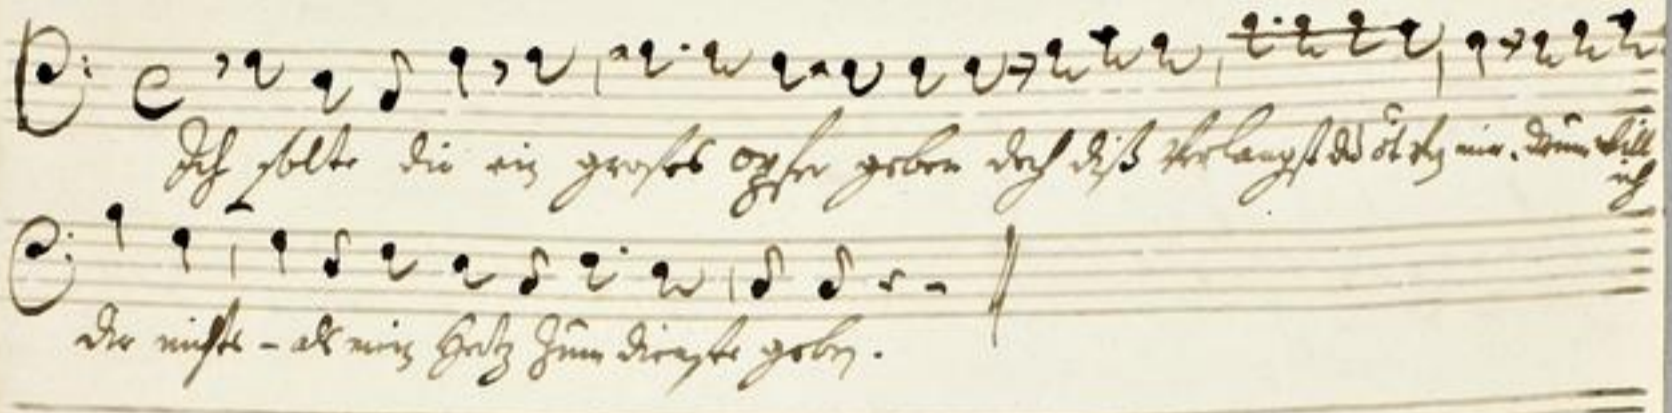 Ich solte dir ein großes opfer geben doch diß verlangst du von mir. drum will
ich
dir nichts - als mein Hertz zum dienste geben.